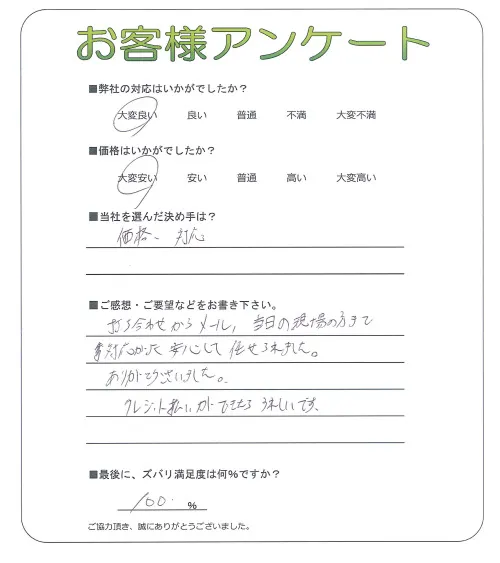 お客様アンケート
■弊社の対応はいかがでしたか？
大変良い 良い 普通 不満 大変不満
■価格はいかがでしたか？
大変安い 安い 普通 高い 大変高い
■当社を選んだ決め手は？
価格、対応
■ご感想・ご要望などをお書き下さい。
打ち合わせからメール、当日の現場の方まで
対応がよく安心して任せられました。
ありがとうございました。
クレジット払いができたらうれしいです。
■最後に、ズバリ満足度は何％ですか？
100. ％
ご協力頂き、誠にありがとうございました。